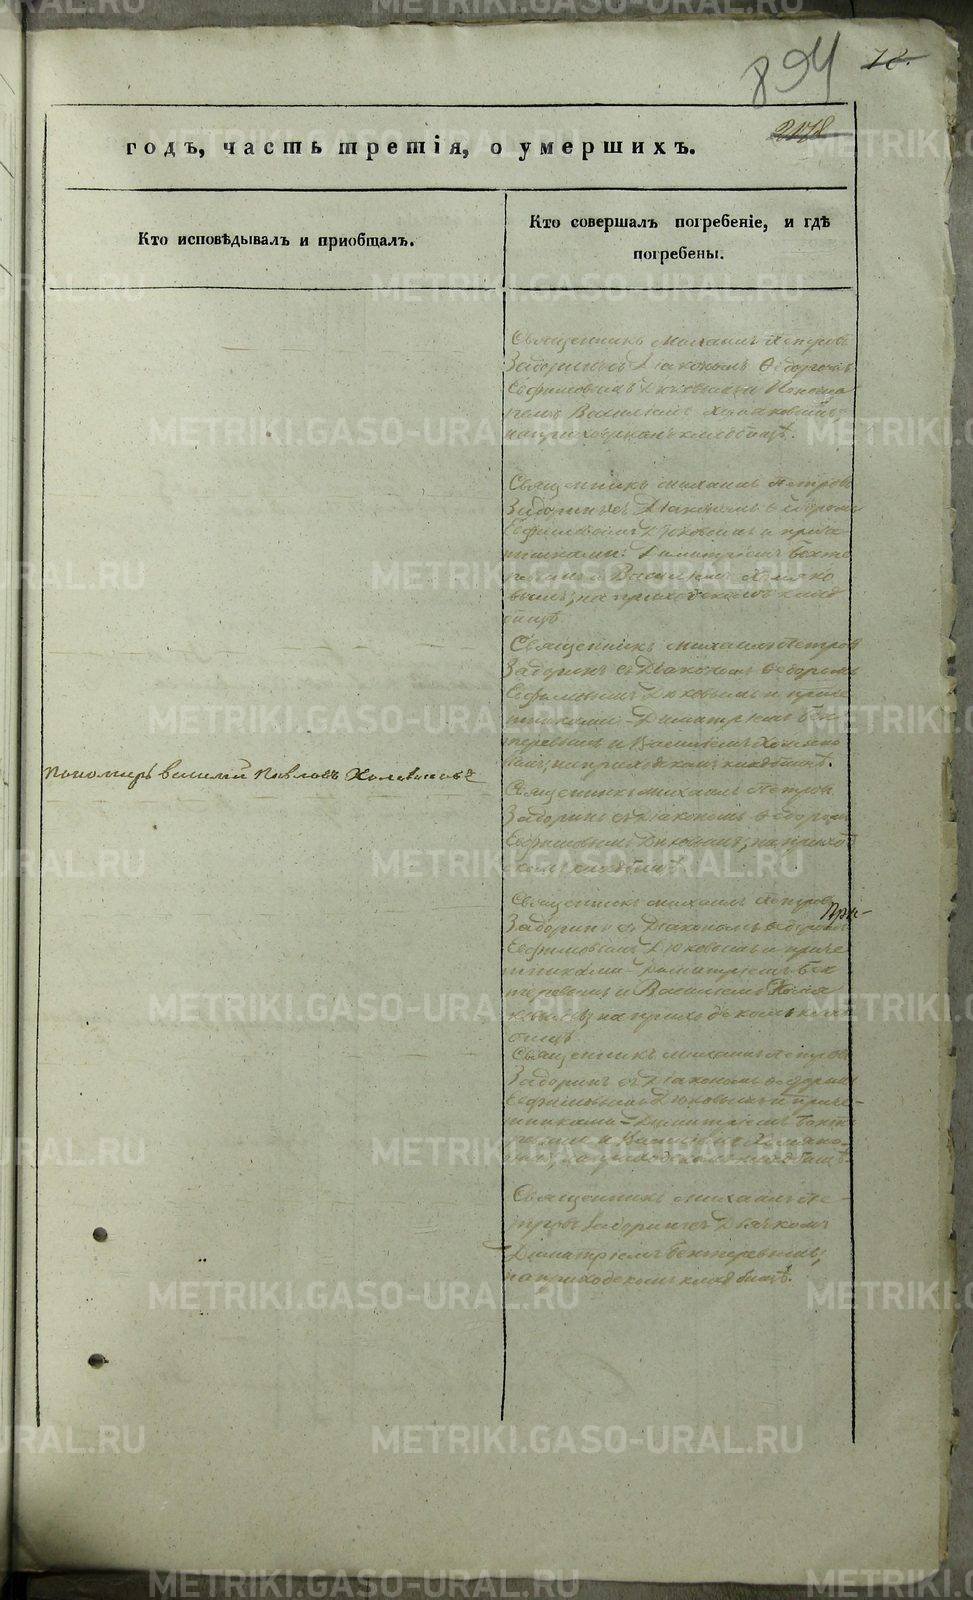 894 78.
2178
годъ, часть третія, о умершихъ.
Кто исповѣдывалъ и приобщалъ.
Кто совершалъ погребеніе, и гдѣ
погребены.
Священникъ Михаилъ Петровъ
Задоринъ съ Діакономъ Ѳедоромъ
Евфимовымъ Дюковымъ и Понома
ремъ Василіемъ
на приходскомъ кладбищѣ.
Священникъ Михаилъ Петровъ
Задоринъ съ Діакономъ Ѳедоромъ
Евфимовымъ Дюковымъ и приче
тниками: Димитріемъ Бехте
ревымъ и Василіемъ Хомяко
вымъ, на приходскомъ клад
бищѣ
Священникъ Михаилъ Петровъ
Задоринъ съ Діакономъ Ѳедоромъ
Евфимовымъ Дюковымъ и приче
тниками Димитріемъ Бех
теревымъ и Василіемъ Хомяко
вымъ, на приходскомъ кладбищѣ.
Пономарь Василий Павловъ
Священникъ Михаилъ Петров
Задоринъ съ Діакономъ Ѳедоромъ
Евфимовымъ Дюковымъ, на приход
скомъ кладбищѣ
Священникъ Михаилъ Петровъ
При-
Задоринъ съ Діакономъ Ѳедоромъ
Евфимовымъ Дюковымъ и приче
тниками Димитріемъ Бех
теревымъ и Василіемъ Хомя
ковымъ, на приходскомъ клад
бищѣ
Священникъ Михаилъ Петровъ
Задоринъ съ Діакономъ Ѳедоромъ
Евфимовымъ Дюковымъ и приче-
тниками Димитріемъ Бехте
ревымъ и Василіемъ Хомяко-
вымъ, на приходскомъ кладбищѣ.
Священникъ Михаилъ Пе-
тровъ Задоринъ съ Дьячкомъ
Димитріемъ Бехтеревымъ,
на приходскомъ кладбищѣ.
METRIKI.GASO-URAL.RU